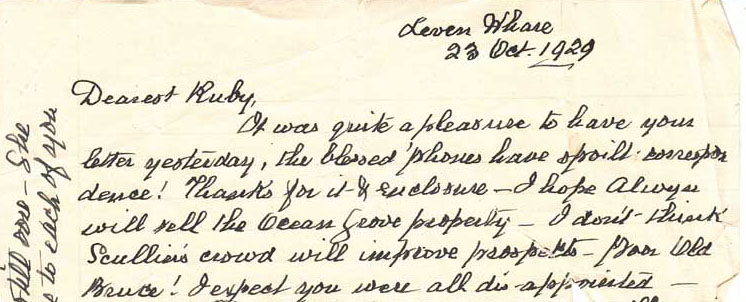 Leven Whare
23 Oct. 1929
Dearest Ruby,
It was quite a pleasure to have your
letter yesterday, the blessed 'phones have spoilt correspon
dence! Thanks for it & enclosure - I hope Alwyn
will sell the Ocean Grove property - I don't think
Scullin's crowd will improve prospects - Poor Old
Bruce! I expect you were all dis-appointed -
still - She
to each of you